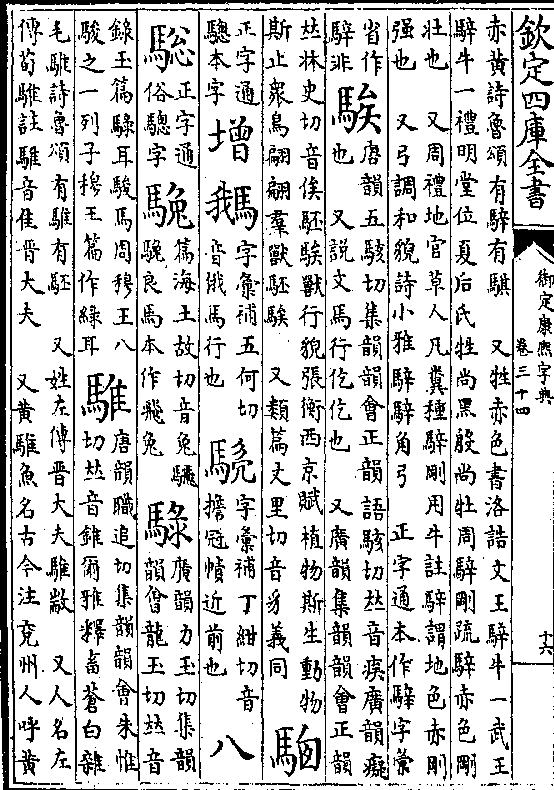 欽定四庫全書
御定康熙字典
卷三十四
十六
赤黄詩魯頌有騂有騏 又牲赤色書洛誥文王騂牛一武王
騂牛一禮明堂位夏后氏牲尚黑殷尚牡周騂剛疏騂赤色剛
壯也 又周禮地官草人凡糞種騂剛用牛註騂謂地色赤剛
强也 又弓調和貌詩小雅騂騂角弓 正字通本作騂字彙
省作
騂非
騃
唐韻五駭切集韻韻會正韻語駭切𠀤音疾廣韻癡
也 又說文馬行仡仡也 又廣韻集韻韻會正韻
𠀤牀史切音俟駓騃獸行貌張衡西京賦植物斯生動物
斯止衆鳥翩翩羣獸駓騃 又類篇丈里切音豸義同
正字通
驄本字
增
字彙補五何切
音俄馬行也
字彙補丁紺切音
擔冠幘近前也
八
正字通
俗驄字
篇海土故切音兔
良馬本作飛兔
騄
廣韻力玉切集韻
韻會龍玉切𠀤音
錄玉篇騄耳駿馬周穆王八
駿之一列子穆王篇作綠耳
騅
唐韻職追切集韻韻會朱惟
切𠀤音錐爾雅釋畜蒼白雜
毛騅詩魯頌有騅有駓 又姓左傳晉大夫騅歂 又人名左
傳荀騅註騅音隹晉大夫 又黄騅魚名古今注兗州人呼黄